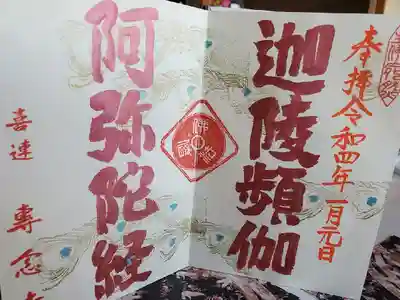 奉拝令和四年一月元日
迦陵頻伽
阿弥陀経
喜連 專念寺